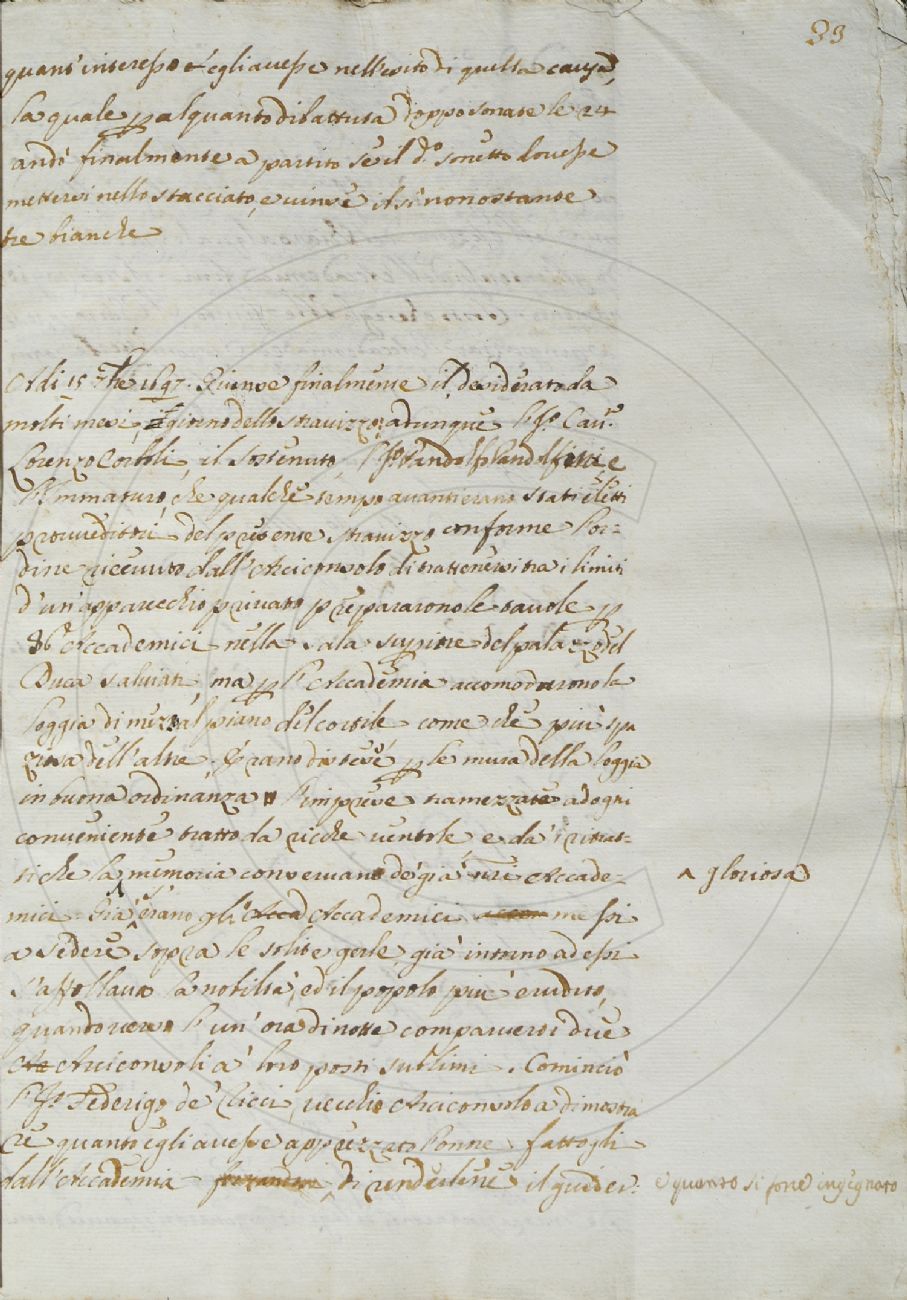 33
quant'interesse egli avesse nell'esito di questa causa,
la quale p alquanto dibattuta doppo sonate le 24
andò finalmente a partito se il d.o sonetto dovesse
mettersi nello stacciato, e vinse il sì nonostante
tre bianche
Adi 15 7bre 1697. Giunse finalmente il desiderato da
molti mesi giorno dello stravizzo; adunque l'Ill.o Cav.e
Lorenzo il Sostenuto, Pandolf Pandolfini e
l'Immaturo, che qualche tempo avanti erano stati eletti
provveditori del presente stravizzo conforme l'or-
dine ricevuto dall'Arciconsolo di trattenersi tra i limiti
d'un'apparecchio privato prepararono le tavole p
36 Accademici nella sala del palazzo del
Duca Salviati, ma p l'Accademia accomodarono la
loggia di mezzo al piano del cortile come che più spa
ziosa dell'altre. Erano distese p le mura della loggia
in buona ordinanza l'imprese tramezzate ad ogni
conveniente tratto da ricche ventole e da' ritrat-
ti che la memoria conservano de' già nri Accade-
^ gloriosa
mici. Già erano gl' Accad Accademici messi
a sedere sopra le solite gerle già intorno ad essi
s'affollava la nobiltà, ed il popolo più erudito,
quando verso l'un'ora di notte comparvero i due
Ar Arciconsoli a' loro posti sublimi. Cominciò
l'Ill.o Federigo de' Ricci, vecchio Arciconsolo a dimostra
re quanto egli avesse apprezzato l'onore fattogli
dall'Accademia di rendelene il guider.
e quanto si fone ingegnato